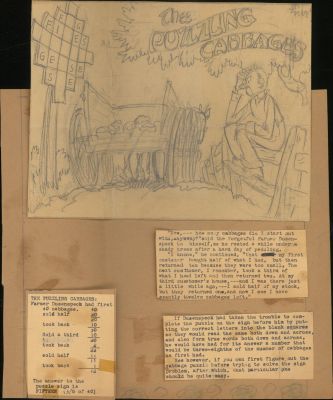 The
PUZZLING
CABBAGES
"Now, -- how many cabbages did I start out
with, anyway?" said the forgetful Farmer Dunen-
speck to himself, as he rested a while under a
shady tree after a hard day of peddling.
"I know," he continued, "that my first
customer bought half of what I had, but then
returned ten because they were too small. The
next customer, I remember, took a third of
what I had left and then returned two. At my
third customer's house, -- and I was there just
a little while ago, -- I sold half of my stock,
but they returned one, and now I see I have
exactly twelve cabbages left."
If Dunenspeck had taken the trouble to com-
plete the puzzle on the sign before him by put-
ting the correct letters into the blank squares
so they would read the same both down and across,
and also form true words both down and across,
he would have had for its answer a number that
would be three-eighths of the number of cabbages
he first had.
See however, if you can first figure out the
cabbage puzzle before trying to solve the sign
problem, after which, that particular one
should be quite easy.
THE PUZZLING CABBAGES:
Farmer Dunenspeck had first
40 cabbages. 40
sold half
took back 10
Sold a third 10
took back 2
22
sold half 11
took back
12
The answer to the
puzzle sign is
FIFTEEN (3/8 of 40)